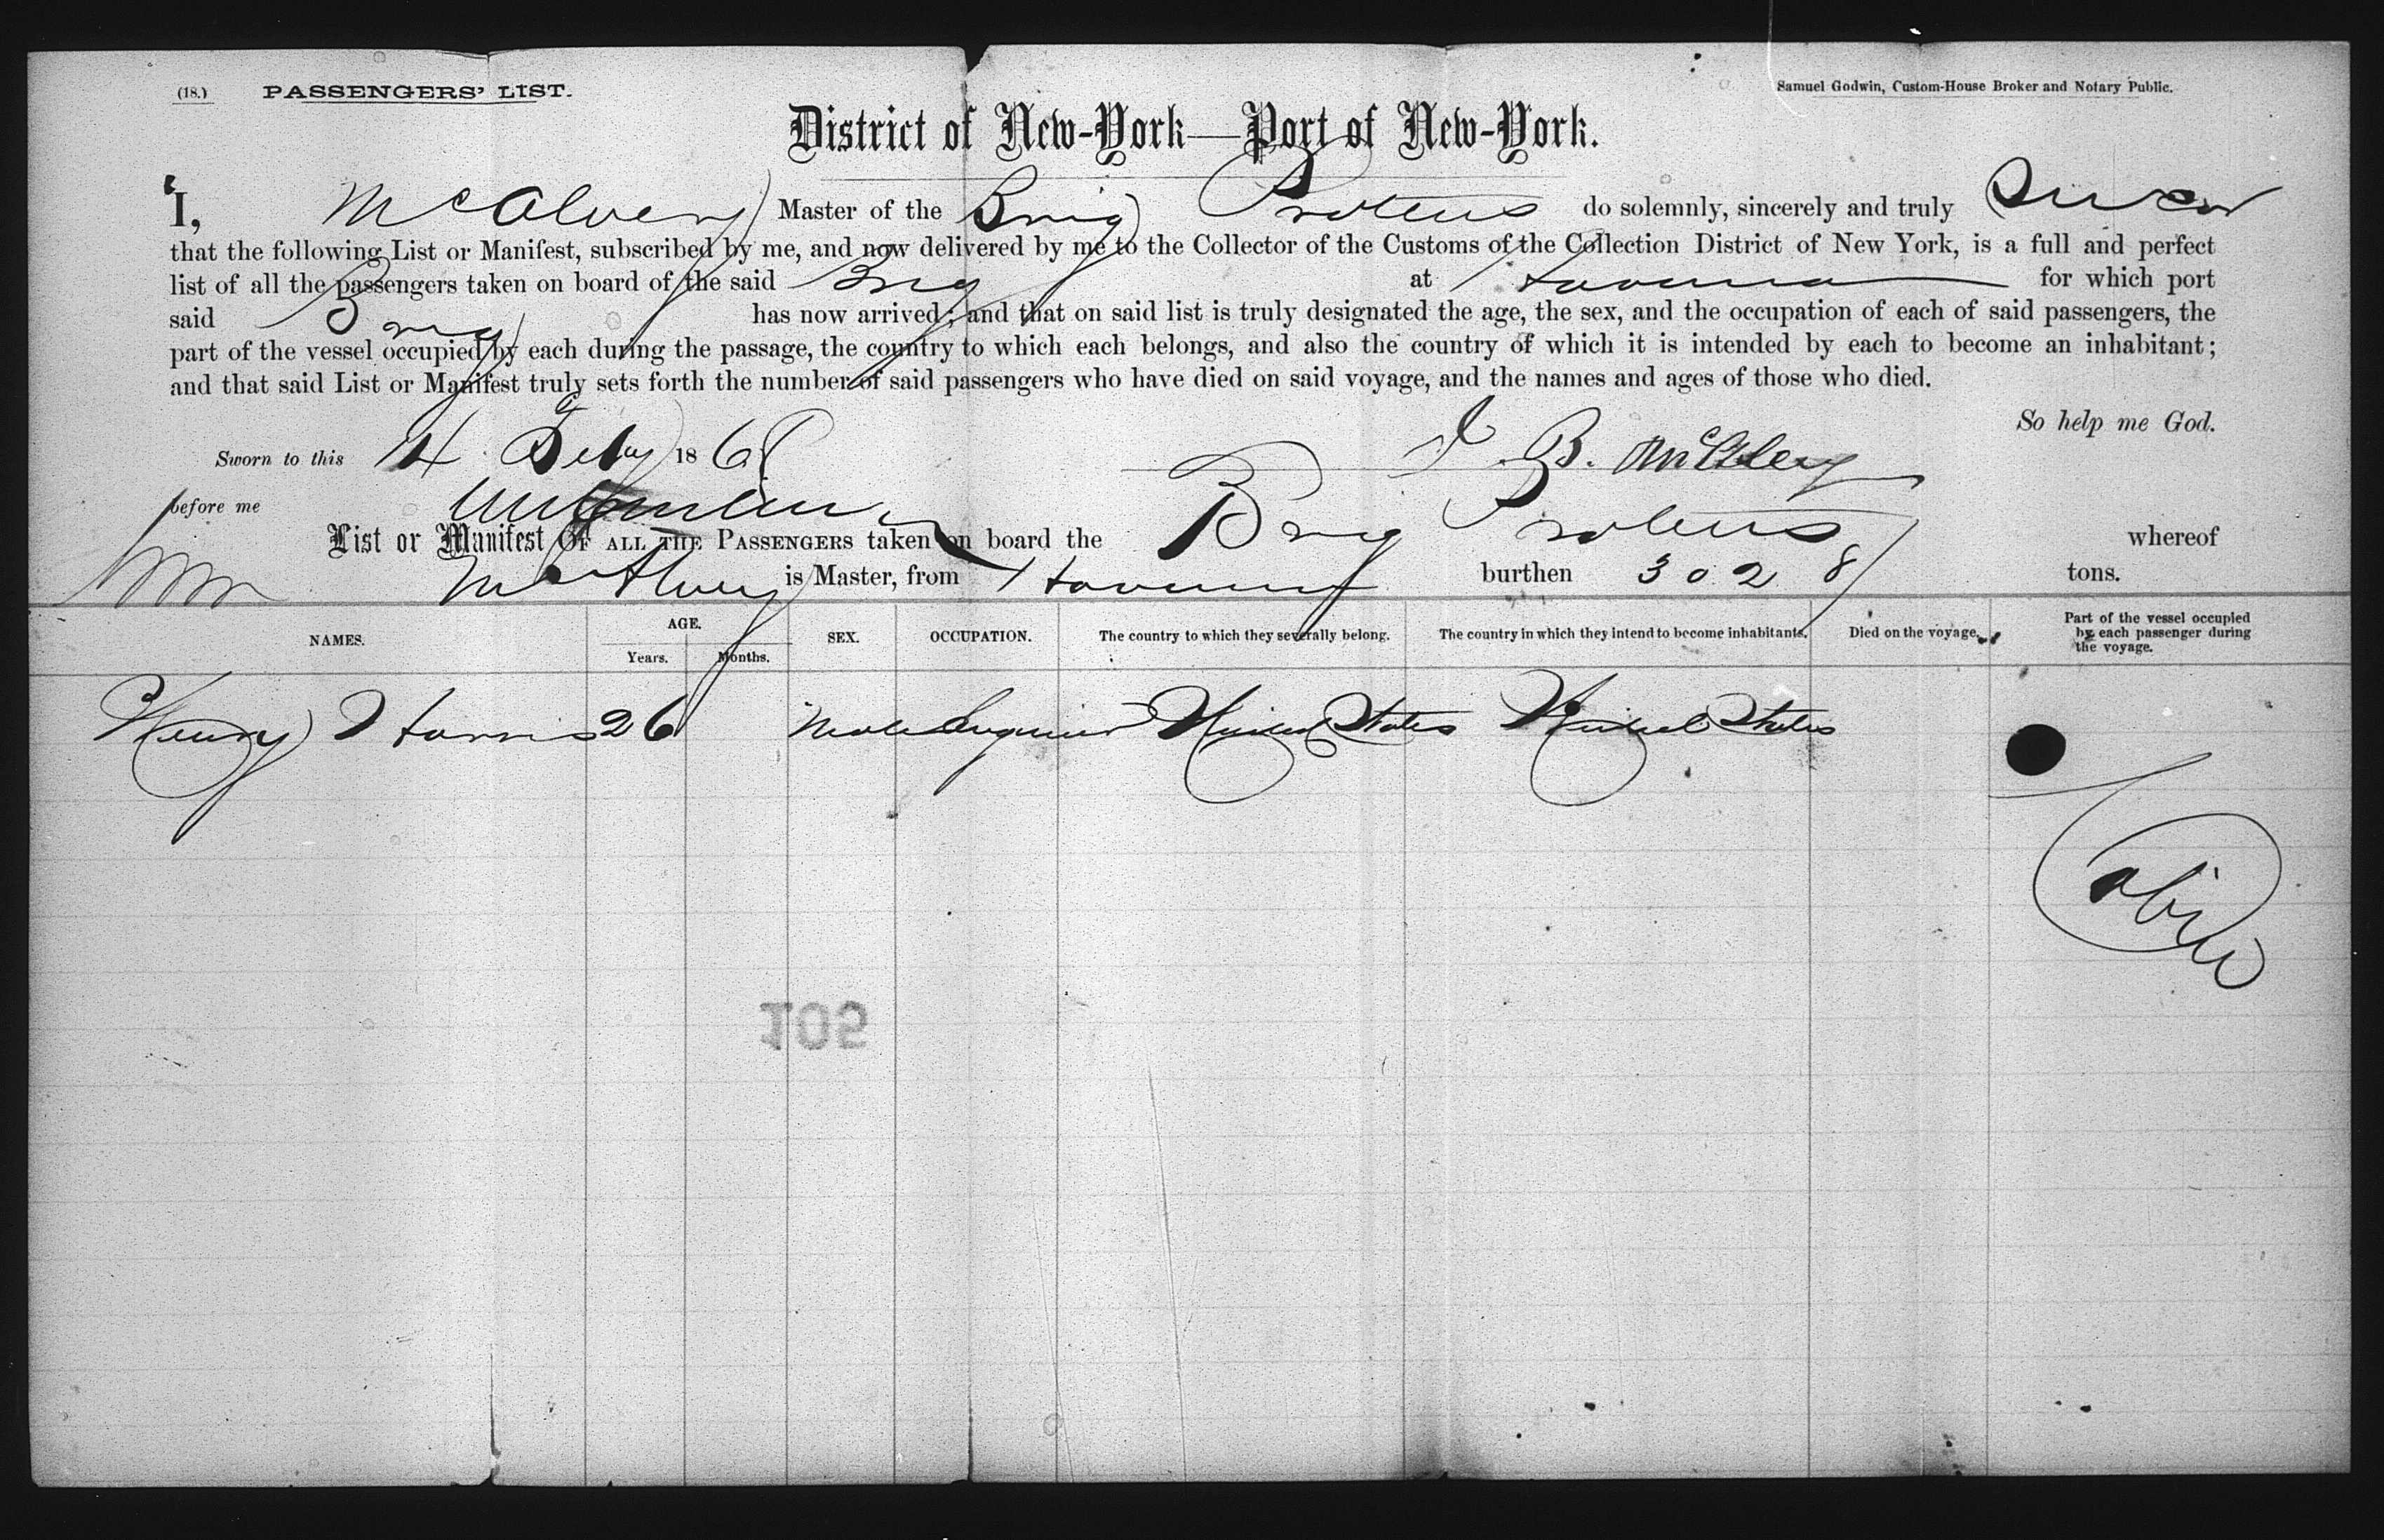 (18.) PASSENGERS' LIST.
Samuel Godwin, Custom-House Broker and Notary Public.
District of New-York—Port of New-York.
I, Master of the Brig Proteus do solemnly, sincerely and truly Swear
that the following List or Manifest, subscribed by me, and now delivered by me to the Collector of the Customs of the Collection District of New York, is a full and perfect
list of all the passengers taken on board of the said Brig at Havana for which port
said Brig has now arrived; and that on said list is truly designated the age, the sex, and the occupation of each of said passengers, the
part of the vessel occupied by each during the passage, the country to which each belongs, and also the country of which it is intended by each to become an inhabitant;
and that said List or Manifest truly sets forth the number of said passengers who have died on said voyage, and the names and ages of those who died.
So help me God.
Sworn to this 14 Feby 1868 J. B.
before me
List or Manifest OF ALL THE PASSENGERS taken on board the Brig Proteus whereof
is Master, from Havana burthen 302 8/ tons.
NAMES. AGE. Years. Months. SEX. OCCUPATION. The country to which they severally belong. The country in which they intend to become inhabitants. Died on the voyage. Part of the vessel occupied by each passenger during the voyage.
Henry Harris 26 Male Engineer United States United States
Cabin
105